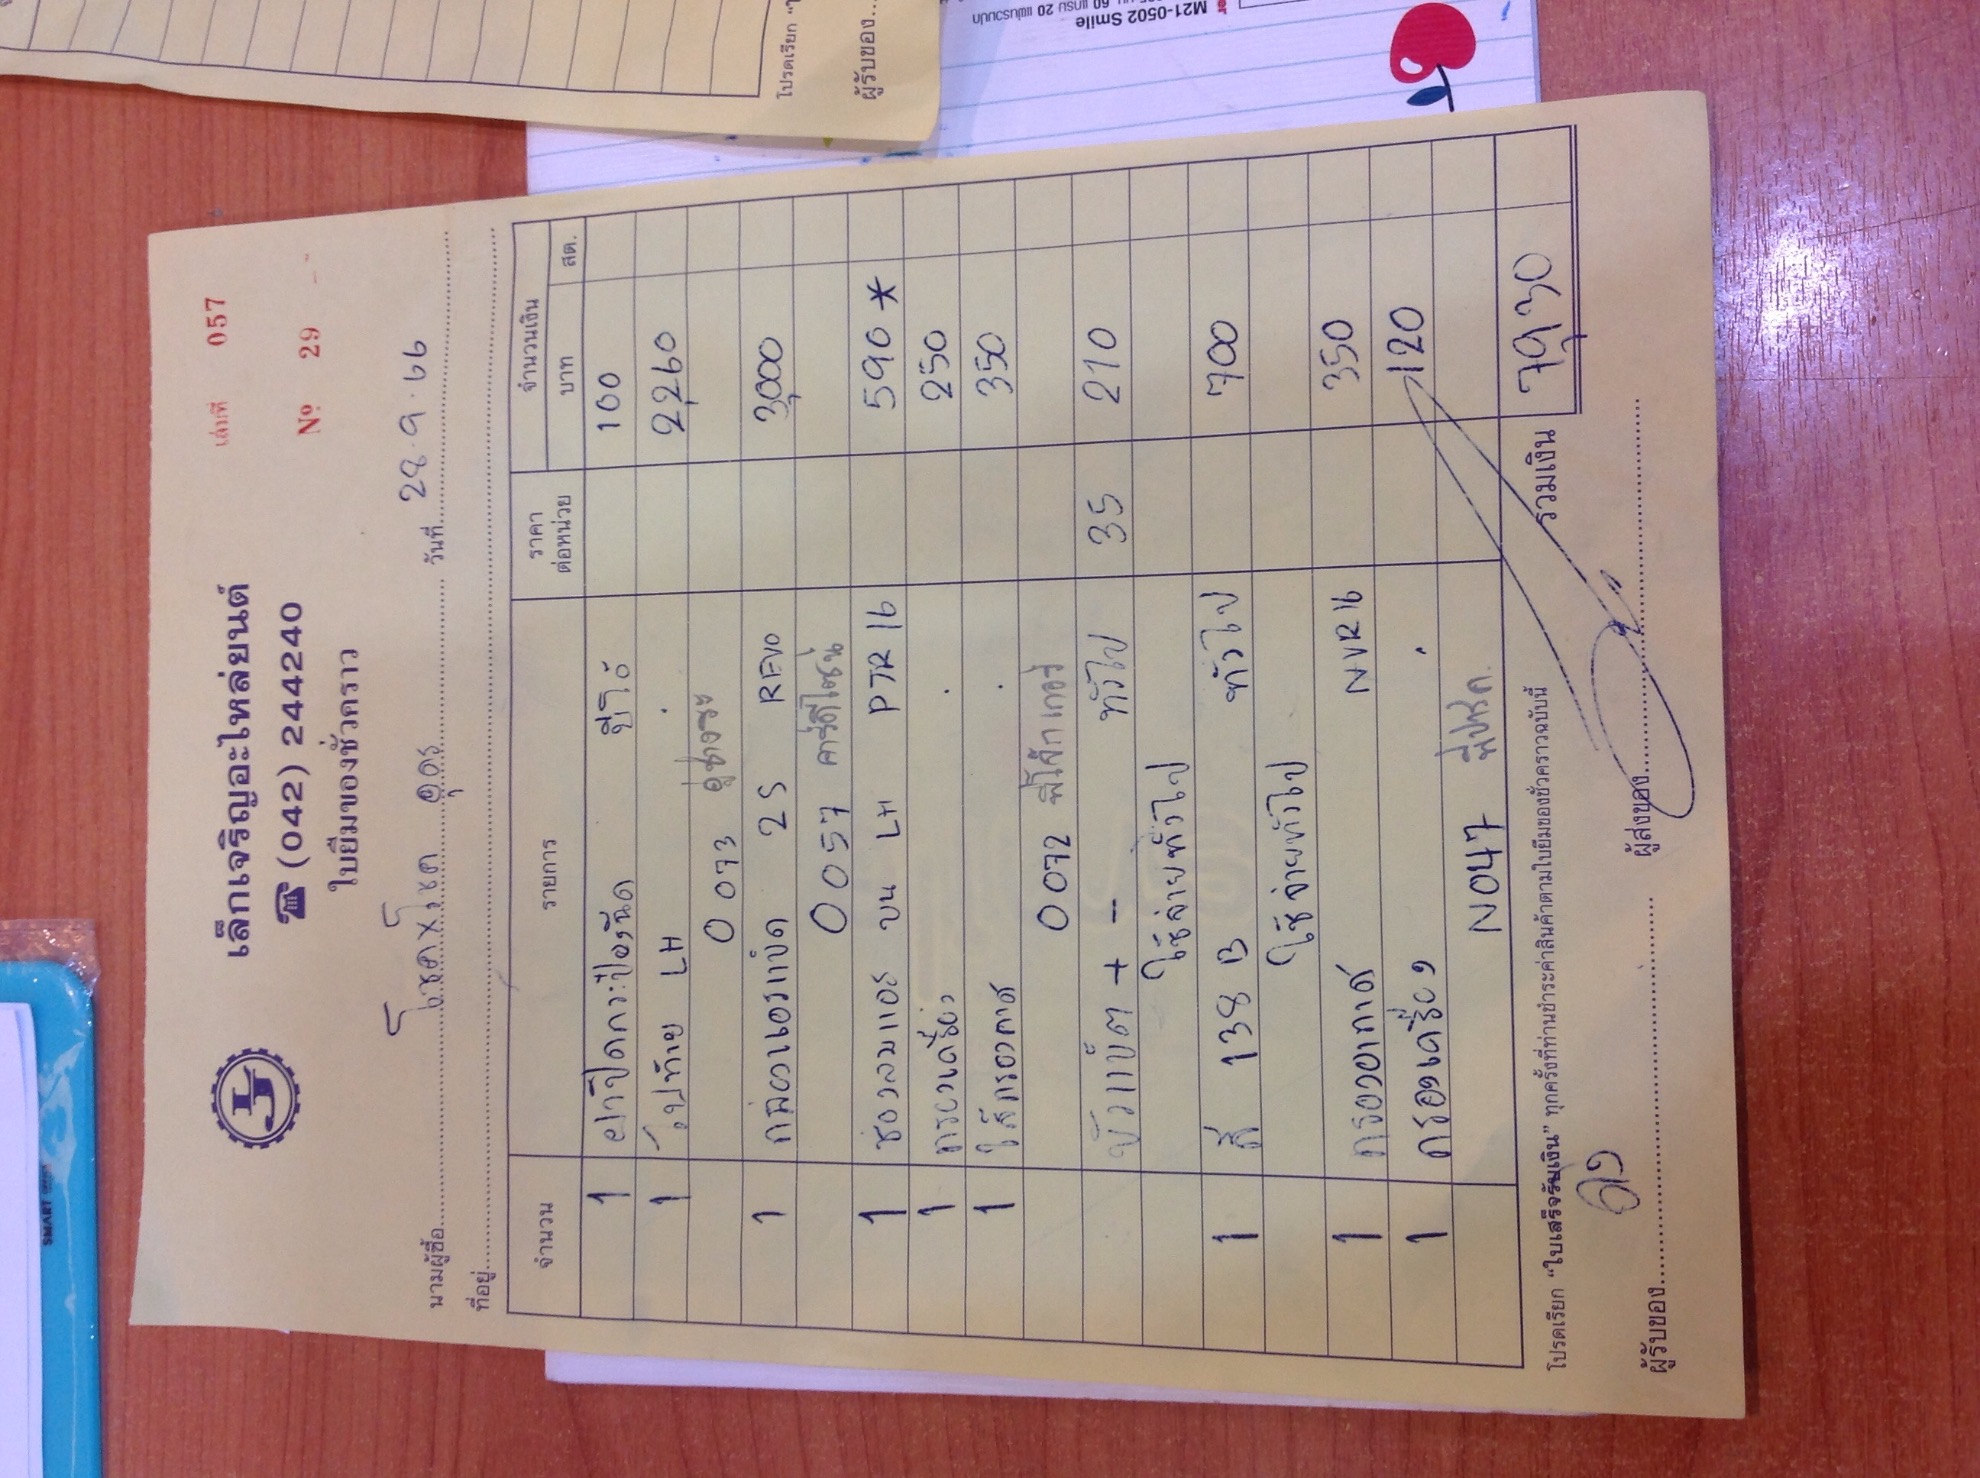 เล่มที่ 057
เล็กเจริญอะไหล่ยนต์
☎ (042) 244240
Nº 29
ใบยืมของชั่วคราว
นามผู้ซื้อ โชคชัย อุดร วันที่ 28.9.66
ที่อยู่
จำนวน รายการ ราคาต่อหน่วย จำนวนเงิน
บาท สต.
1 ฝาปิดกระป๋องฉีด วีโก้ 100
1 ไฟท้าย LH . 2,260
0073
1 กล่องแอร์แบ็ค 2S REVO 3,000
0057
1 ช่องลมแอร์ บน LH PTR 16 590 *
1 กรองเครื่อง . 250
1 ไส้กรองกาศ . 350
0072
ขั้วแบ็ต + - ทั่วไป 35 210
ใช้จ่ายทั่วไป
1 สี 138 B ทั่วไป 700
ใช้จ่ายทั่วไป
1 กรองอากาศ NVR16 350
1 กรองเครื่อง . 120
N047
รวมเงิน 7,930
โปรดเรียก "ใบเสร็จรับเงิน" ทุกครั้งที่ท่านชำระค่าสินค้าตามใบยืมของชั่วคราวฉบับนี้
ผู้รับของ ผู้ส่งของ
โปรดเรียก "ใ
ผู้รับของ
M21-0502 Smile
SMART